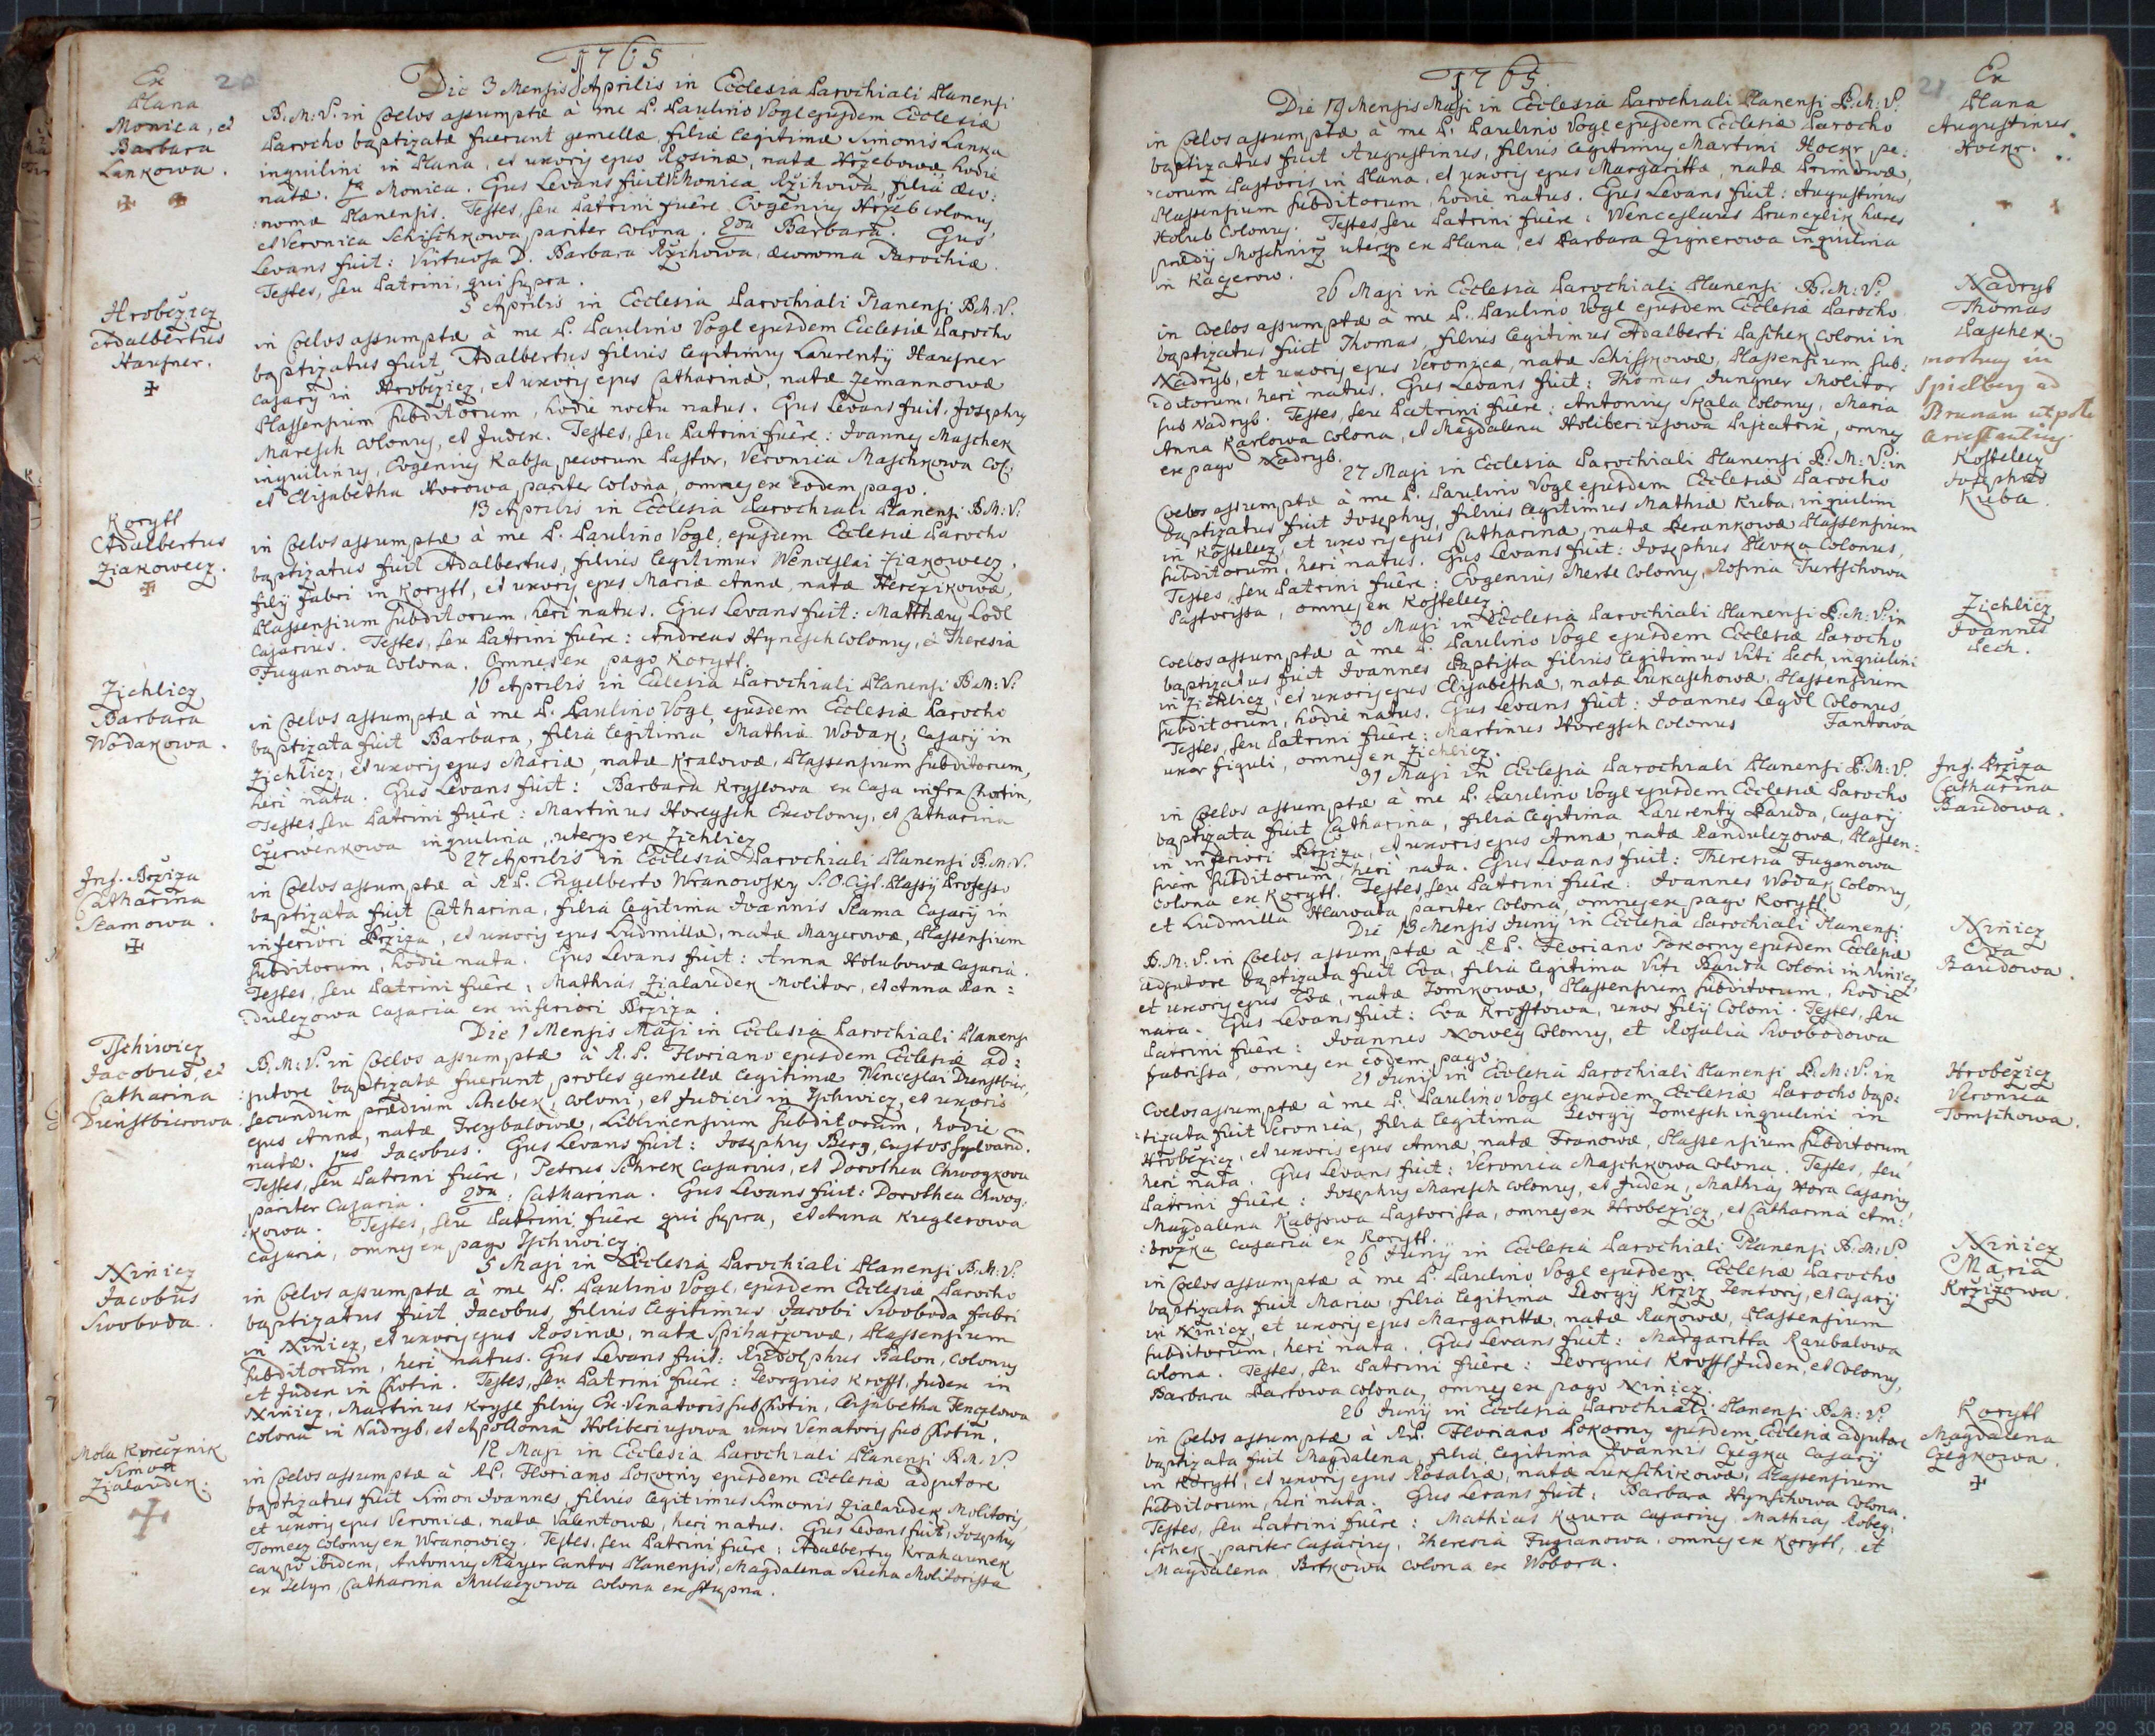 1765
20
Ex
Plana
Monica, et
Barbara
Lankowa.
Die 3 Mensis Aprilis in Ecclesia Parochiali Planensi
B: M: V: in Coelos assumptæ à me P. Paulino Vogl ejusdem Ecclesiæ
Parocho baptizatæ fuerunt gemellæ, filiæ legitimæ Simonis Lanka
inquilini in Plana, et uxoris ejus Rosinæ, natæ Hržebowæ, hodie
natæ. 1ma Monica. Ejus Levans fuit Monica Ržihowa, filia œco:
:nomæ Planensis. Testes, seu Patrini fuêre Evgenius Hržeb colonus,
et Veronica Schischkowa pariter colona. 2da Barbara. Ejus
Levans fuit: Virtuosa D. Barbara Ržihowa, œconoma Parochiæ.
Testes, seu Patrini, qui supra.
Hrobczicz
Adalbertus
Hausner.
5 Aprilis in Ecclesia Parochiali Planensi B: M: V:
in Coelos assumptæ à me P. Paulino Vogl ejusdem Ecclesiæ Parocho
baptizatus fuit Adalbertus filius legitimus Laurentÿ Hausner
casarÿ in Hrobczicz, et uxoris ejus Catharinæ, natæ Zemannowæ
Plassensium subditorum, hodie noctu natus. Ejus Levans fuit: Josephus
Maresch colonus, et Judex. Testes, seu Patrini fuêre: Joannes Maschek
inquilinus, Evgenius Kabsa, pecorum Pastor, Veronica Maschkowa col:
et Elisabetha Horowa pariter colona, omnes ex eodem pago.
Korytl
Adalbertus
Ziakowecz.
13 Aprilis in Ecclesia Parochiali Planensi B: M: V:
in Coelos assumptæ à me P. Paulino Vogl, ejusdem Ecclesiæ Parocho
baptizatus fuit Adalbertus, filius legitimus Wenceslai Ziakowecz,
filÿ fabri in Korytl, et uxoris ejus Mariæ Annæ, natæ Herczikowæ,
Plassensium subditorum, heri natus. Ejus Levans fuit: Matthæus Lodl
casarius. Testes, seu Patrini fuêre: Andreas Hynesch colonus, et Theresia
Fuganowa colona. Omnes ex pago Korytl.
Zichlicz
Barbara
Wodakowa.
16 Aprilis in Eclesia Parochiali Planensi B: M: V:
in Coelos assumptæ à me P. Paulino Vogl, ejusdem Ecclesiæ Parocho
baptizata fuit Barbara, filia legitima Mathiæ Wodak, casarÿ in
Zichlicz, et uxoris ejus Mariæ, natæ Kralowæ, Plassensium subditorum,
heri nata. Ejus Levans fuit: Barbara Kryslowa ex casa infra Chotin,
Testes, seu Patrini fuêre: Martinus Horegsch Excolonus, et Catharina
Czerwenkowa inquilina, uterq ex Zichlicz.
Inf. Brziza
Catharina
Slamowa.
27 Aprilis in Ecclesia Parochiali Planensi B: M: V:
in Coelos assumptæ à R. P. Engelberto Wranowsky S. O. Cist. Plassÿ Professo
baptizata fuit Catharina, filia legitima Joannis Slama casarÿ in
inferiori Brziza, et uxoris ejus Ludmillæ, natæ Mayerowæ, Plassensium
subditorum, hodie nata. Ejus Levans fuit: Anna Holubowa casaria.
Testes, seu Patrini fuêre: Mathias Zialaudek Molitor, et Anna Ran=
:dulezowa casaria ex inferiori Brziza.
Tschiwicz
Jacobus, et
Catharina
Dienstbierowa.
Die 1 Mensis Maji in Ecclesia Parochiali Planensi
B: M: V: in Coelos assumptæ à R. P. Floriano ejusdem Ecclesiæ ad=
:jutore baptizatæ fuerunt, proles gemellæ legitimæ Wenceslai Dienstbier,
secundum prædium Schebek, coloni, et Judicis in Tschiwicz, et uxoris
ejus Annæ, natæ Treybalowæ, Liblinensium subditorum, hodie
natæ. 1us Jacobus. Ejus Levans fuit: Josephus Berg, custos sylvarum.
Testes, seu Patrini fuêre, Petrus Schrek casarius, et Dorothea Chwogkowa
pariter casaria. 2da: Catharina. Ejus Levans fuit: Dorothea Chwog:
:kowa. Testes, seu Patrini fuêre qui supra, et Anna Kuglerowa
casaria, omnes ex pago Tschiwicz.
Xinicz
Jacobus
Swoboda.
5 Maji in Ecclesia Parochiali Planensi B: M: V:
in Coelos assumptæ à me P. Paulino Vogl, ejusdem Ecclesiæ Parocho
baptizatus fuit Jacobus, filius legitimus Jacobi Swoboda fabri
in Xinicz, et uxoris ejus Rosinæ, natæ Spiharzowæ, Plassensium
subditorum, heri natus. Ejus Levans fuit: Rudolphus Balon, colonus
et Judex in Chotin. Testes, seu Patrini fuêre: Georgius Krofft, Judex in
Xinicz, Martinus Krysl filius Ex-Venatoris sub Chotin, Elisabetha Henczlowa
colona in Nadryb, et Apollonia Holiberiusowa uxor Venatoris sub Chotin.
Mola Korecznik
Simon
Zialaudek.
12 Maji in Ecclesia Parochiali Planensi B: M: V:
in Coelos assumptæ à R. P. Floriano Pokorny ejusdem Ecclesiæ adjutore
baptizatus fuit Simon Joannes, filius legitimus Simonis Zialaudek Molitoris,
et uxoris ejus Veronicæ, natæ Valentowæ, heri natus. Ejus Levans fuit: Josephus
Tomecz colonus ex Wranowicz. Testes, seu Patrini fuêre: Adalbertus Krahaunek
caupo ibidem, Antonius Mayer Cantor Planensis, Magdalena Sucha Molitorissa
ex Zelyn, Catharina Mulaczowa colona ex Stupna.
1765.
21
Ex
Plana
Augustinus
Hockr.
Die 19 Mensis Maji in Ecclesia Parochiali Planensi B: M: V:
in Coelos assumptæ à me P. Paulino Vogl ejusdem Ecclesiæ Parocho
baptizatus fuit Augustinus, filius legitimus Martini Hockr pe:
:corum Pastoris in Plana, et uxoris ejus Margarittæ, natæ Primowæ,
Plassensium subditorum, hodie natus. Ejus Levans fuit: Augustinus
Holub colonus. Testes, seu Patrini fuêre: Wenceslaus Brunczlik hæres
prædÿ Moschnicz uterq ex Plana, et Barbara Gignerowa inquilina
in Kaczerow.
Nadryb
Thomas
Paschek.
mortuus in
Spielberg ad
Brunam utpote
26 Maji in Ecclesia Parochiali Planensi B: M: V:
in Coelos assumptæ à me P. Paulino Vogl ejusdem Ecclesiæ Parocho
baptizatus fuit Thomas, filius legitimus Adalberti Paschek coloni in
Nadryb, et uxoris ejus Veronicæ, natæ Schisskowæ, Plassensium sub:
:ditorum, heri natus. Ejus Levans fuit: Thomas Jungner Molitor
sub Nadryb. Testes, seu Patrini fuêre: Antonius Skala colonus, Maria
Anna Karlowa colona, et Magdalena Holiberiusowa Piscatrix, omnes
ex pago Nadryb.
Kostelecz
Josephus
Kuba.
27 Maji in Ecclesia Parochiali Planensi B: M: V: in
Coelos assumptæ à me P. Paulino Vogl ejusdem Ecclesiæ Parocho
baptizatus fuit Josephus, filius legitimus Mathiæ Kuba, inquilini
in Kostelecz, et uxoris ejus Catharinæ, natæ Berankowæ Plassensium
subditorum, heri natus. Ejus Levans fuit: Josephus Slivka colonus,
Testes, seu Patrini fuêre: Evgenius Mertl colonus, Rosina Turtschowa
Pastorissa, omnes ex Kostelecz.
Zichlicz
Joannes
Pech.
30 Maji in Ecclesia Parochiali Planensi B: M: V: in
Coelos assumptæ à me P. Paulino Vogl ejusdem Ecclesiæ Parocho
baptizatus fuit Joannes Baptista filius legitimus Viti Pech, inquilini
in Zichlicz, et uxoris ejus Elisabethæ, natæ Lukaschowæ, Plassensium
subditorum, hodie natus. Ejus Levans fuit: Joannes Legdl colonus
Testes, seu Patrini fuêre: Martinus Horegsch colonus Fantowa
uxor figuli, omnes ex Zichlicz.
Inf. Brziza
Catharina
Baudowa.
31 Maji in Ecclesia Parochiali Planensi B: M: V:
in Coelos assumptæ à me P. Paulino Vogl ejusdem Ecclesiæ Parocho
baptizata fuit Catharina, filia legitima Laurentÿ Bauda, casarÿ
in inferiori Brziza, et uxoris ejus Annæ, natæ Randulezowæ, Plassen:
sium subditorum, heri nata. Ejus Levans fuit: Theresia Fuganowa
colona ex Korytl. Testes, seu Patrini fuêre: Joannes Wodak colonus,
et Ludmilla Hlawata, pariter colona, omnes ex pago Korytl.
Xinicz
Eva
Baudowa.
Die 13 Mensis Junÿ in Ecclesia Parochiali Planensi
B: M: V: in Coelos assumptæ à R. P. Floriano Pokorny ejusdem Ecclesiæ
adjutore baptizata fuit Eva, filia legitima Viti Bauda coloni in Xinicz,
et uxoris ejus Evæ, natæ Tomkowæ, Plassensium subditorum, hodie
nata. Ejus Levans fuit: Eva Krofftowa, uxor filÿ coloni. Testes, seu
Patrini fuêre: Joannes Nowey colonus, et Rosalia Swobodowa
fabrissa, omnes ex eodem pago.
Hrobczicz
Veronica
Tomschowa.
21 Junÿ in Ecclesia Parochiali Planensi B: M: V: in
Coelos assumptæ à me P. Paulino Vogl ejusdem Ecclesiæ Parocho bap:
:tizata fuit Veronica, filia legitima Georgÿ Tomesch inquilini in
Hrobczicz, et uxoris ejus Annæ, natæ Franowæ, Plassensium subditorum,
heri nata. Ejus Levans fuit: Veronica Maschkowa colona. Testes, seu
Patrini fuêre: Josephus Maresch colonus, et Judex, Mathias Hora casarius,
Magdalena Kabsowa Pastorissa, omnes ex Hrobczicz, et Catharina Am:
:brozka casaria ex Korytl.
Xinicz
Maria
Kržižowa.
26 Junÿ in Ecclesia Parochiali Planensi B: M: V:
in Coelos assumptæ à me P. Paulino Vogl ejusdem Ecclesiæ Parocho
baptizata fuit Maria, filia legitima Georgÿ Kržiz Textoris, et casarÿ
in Xinicz, et uxoris ejus Margarittæ, natæ Rukowæ, Plassensium
subditorum, heri nata. Ejus Levans fuit: Margaritta Raubalowa
colona. Testes, seu Patrini fuêre: Georgius Krofft Judex, et colonus,
Barbara Bartowa colona, omnes ex pago Xinicz.
Korytl
Magdalena
Czegkowa.
26 Junÿ in Ecclesia Parochiali Planensi B: M: V:
in Coelos assumptæ à R. P. Floriano Pokorny ejusdem Ecclesiæ adjutore
baptizata fuit Magdalena, filia legitima Joannis Czegka casarÿ
in Korytl, et uxoris ejus Rosaliæ, natæ Lukschikowæ, Plassensium
subditorum, heri nata. Ejus Levans fuit: Barbara Hynschowa colona.
Testes, seu Patrini fuêre: Mathias Kaura casarius, Mathias Robeg:
:schek, pariter casarius, Theresia Fugianowa, omnes ex Korytl, et
Magdalena Brtkowa colona ex Wobora.